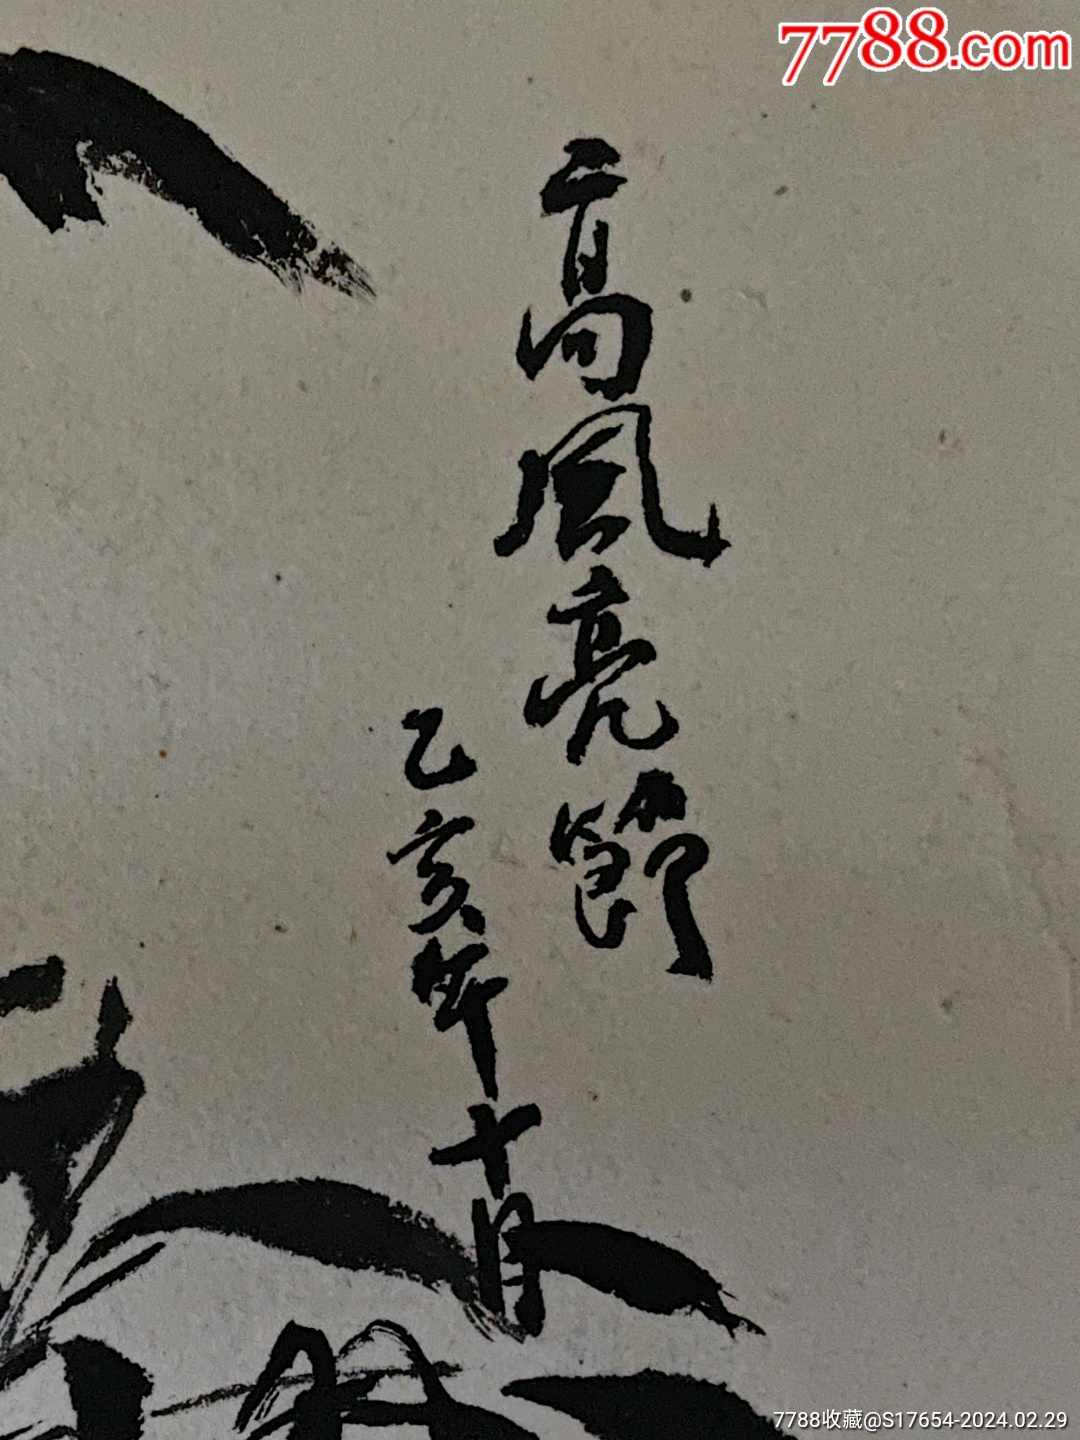 7788.com
高風亮節
乙亥年十月
7788收藏@S17654-2024.02.29